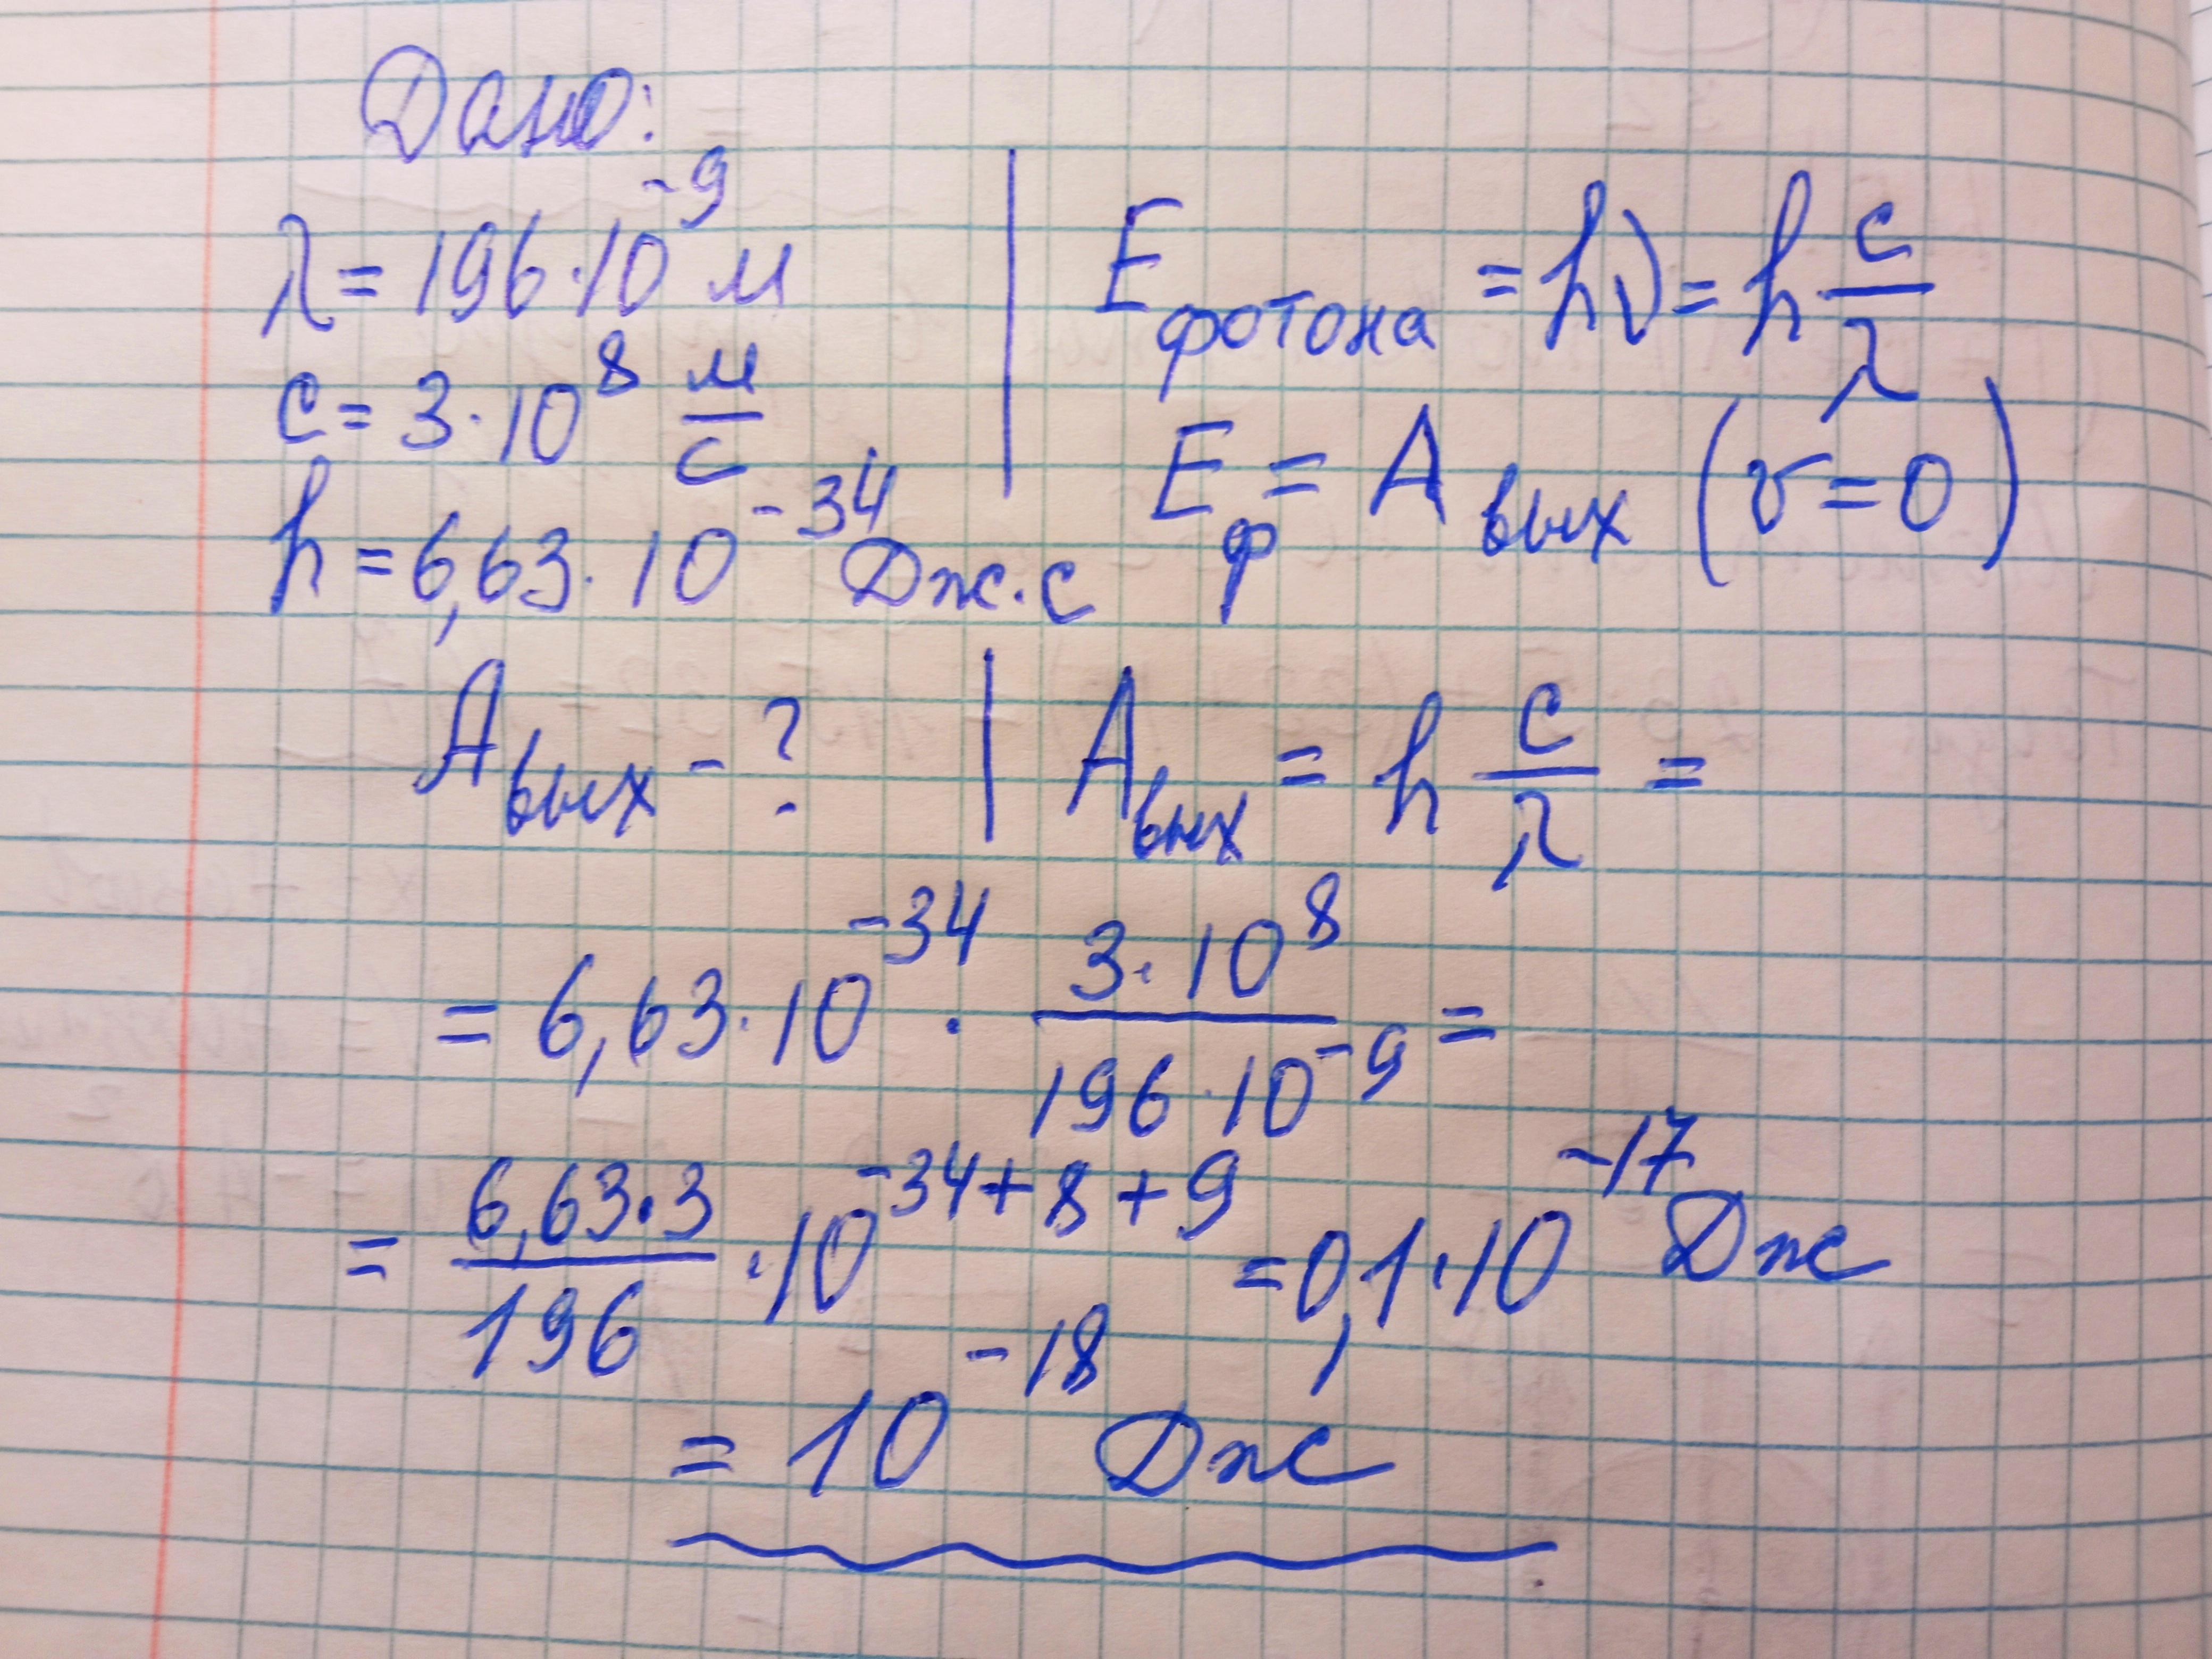 Дано:
λ = 196·10⁻⁹ м
c = 3·10⁸ м/с
h = 6,63·10⁻³⁴ Дж·с
Aвых - ?
Eфотона = hν = h c/λ
Eф = Aвых (v = 0)
Aвых = h c/λ =
= 6,63·10⁻³⁴ · 3·10⁸/196·10⁻⁹ =
= 6,63·3/196 ·10⁻³⁴⁺⁸⁺⁹ = 0,1·10⁻¹⁷ Дж
= 10⁻¹⁸ Дж